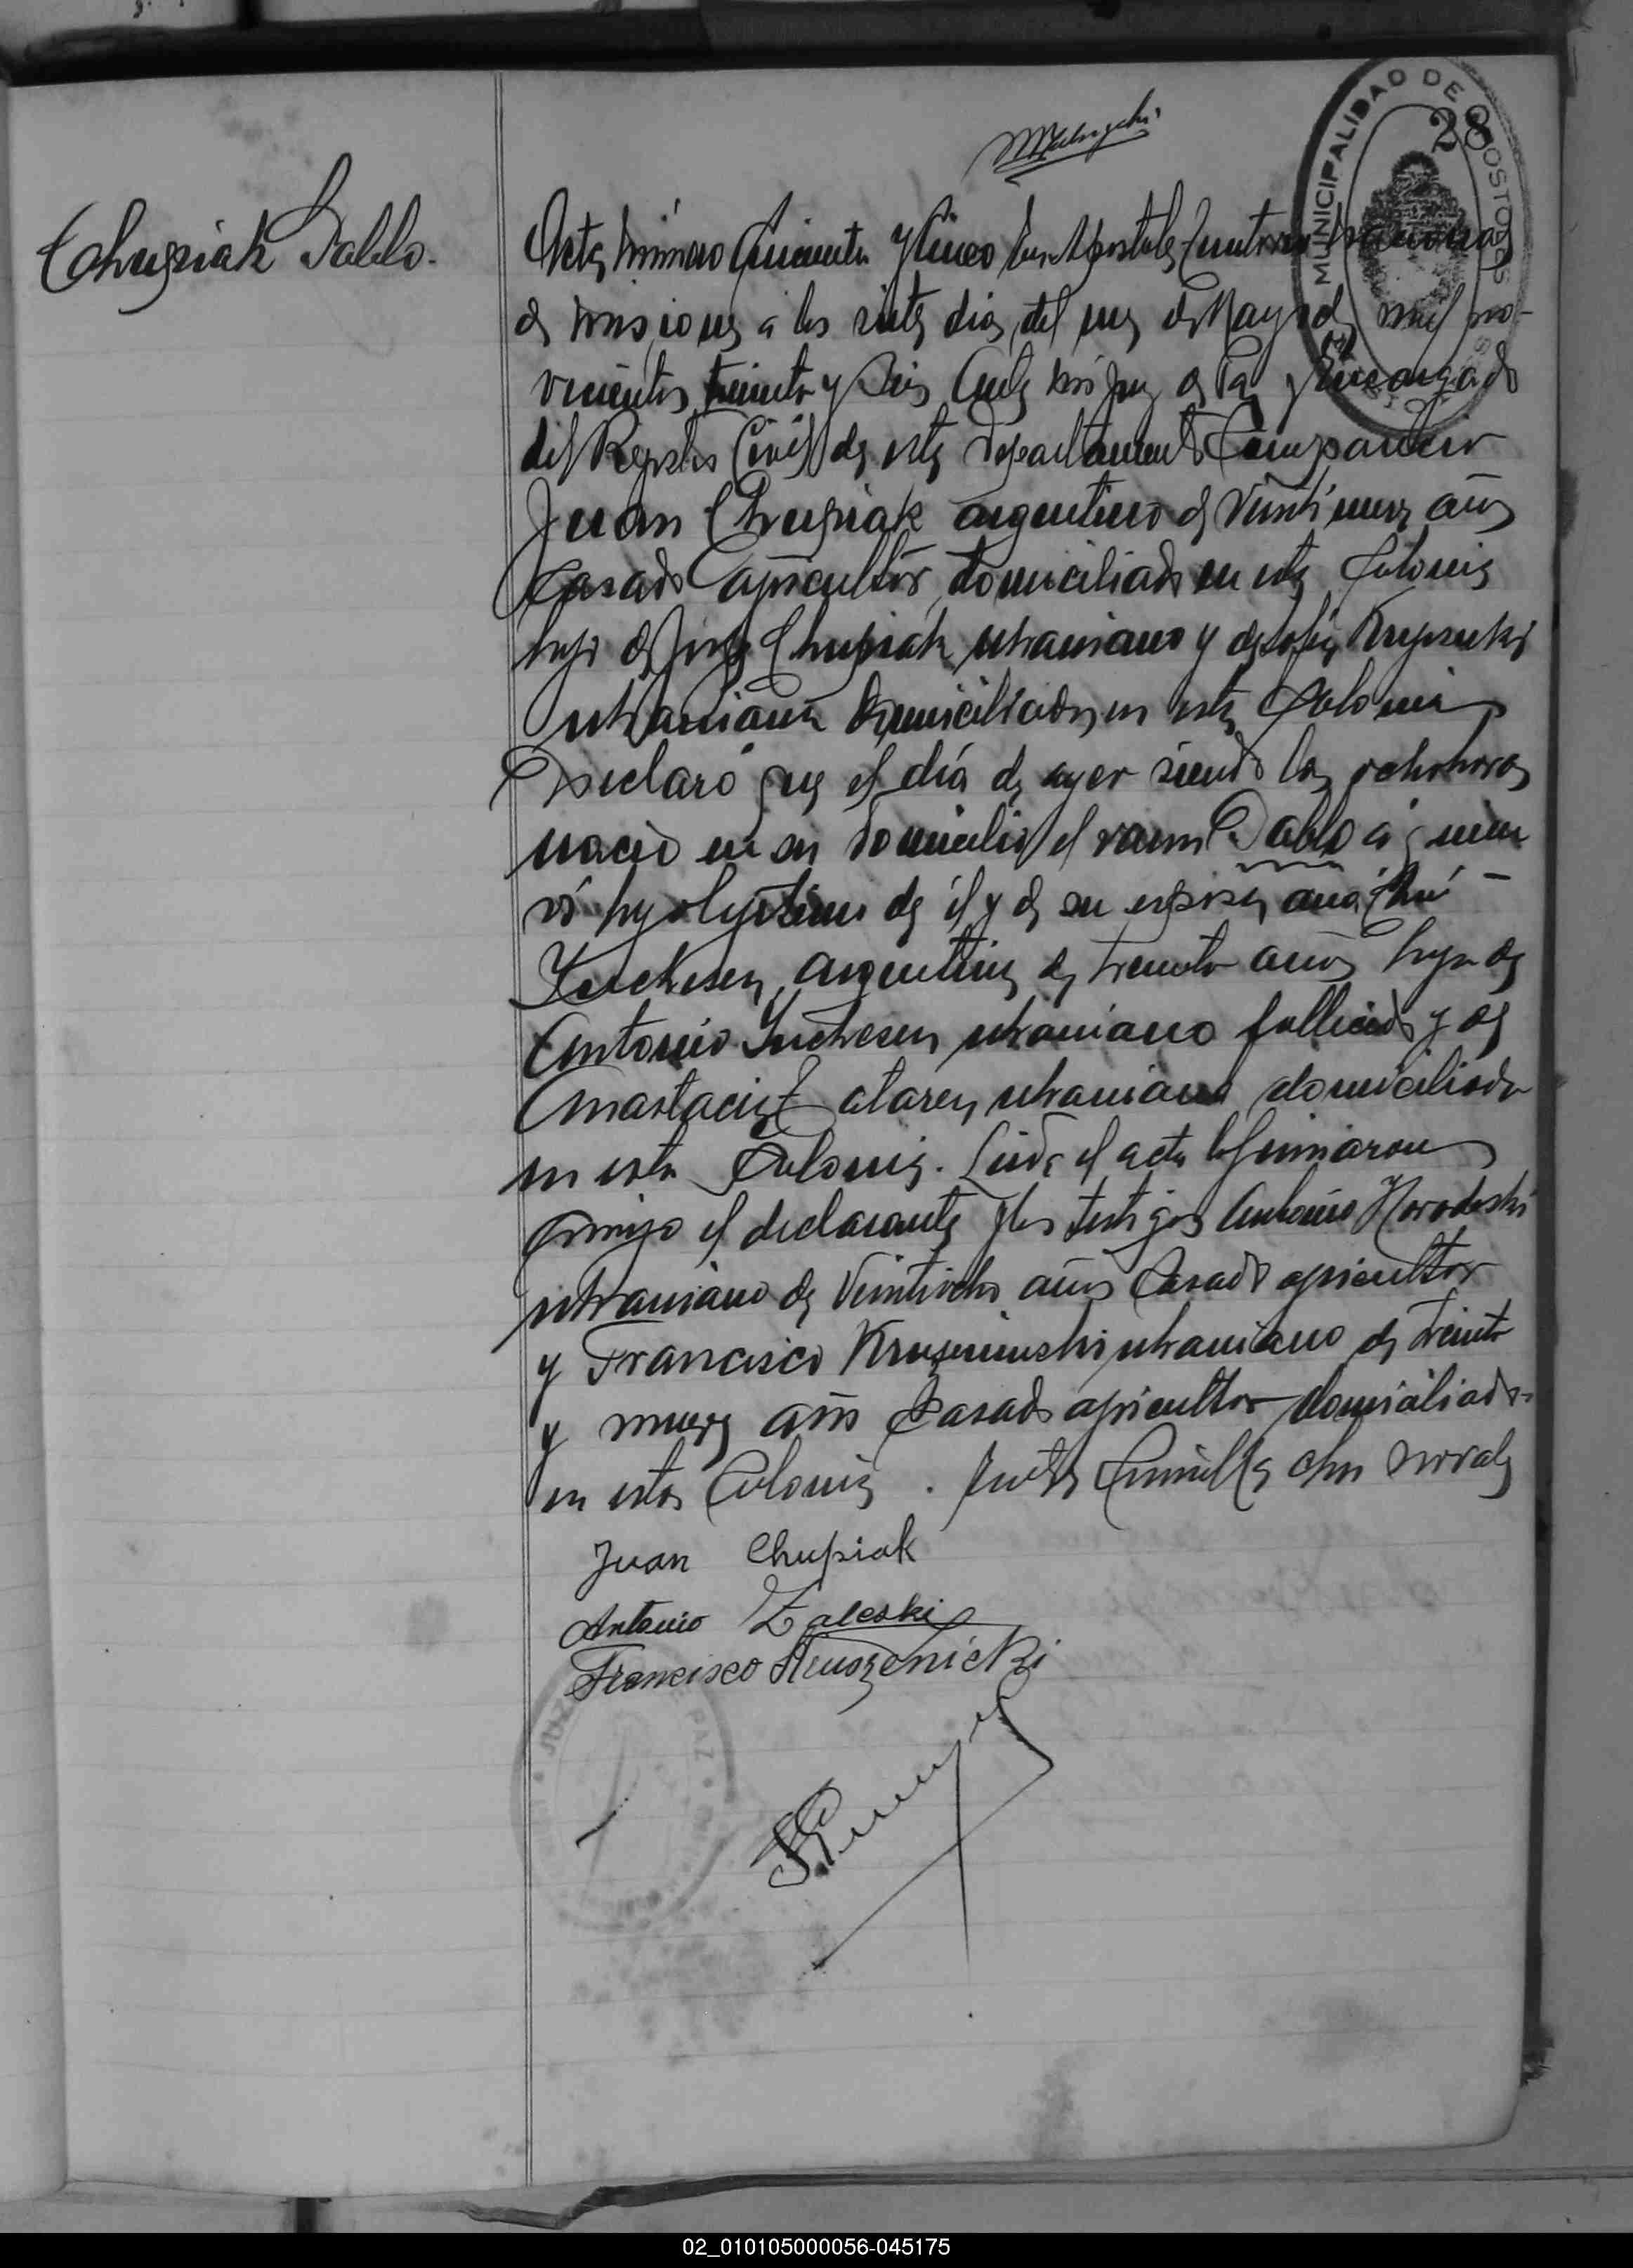 28
MUNICIPALIDAD DE APOSTOLES
Chupiak Pablo.
Acta número Cincuenta y Cinco En Apostoles Territorio Nacional
de Misiones a los siete dias del mes de Mayo de mil no-
vecientos treinta y Seis Ante mi Juez de Paz y Encargado
del Registro Civil de este Departamento Comparecio
Juan Chupiak argentino de Veintinueve años
Casado agricultor, domiciliado en esta Colonia
hijo de José Chupiak ukraniano y de Sofia
ukraniana domiciliados en esta Colonia
Declaró que el día de ayer siendo las ocho horas
nació en su domicilio el varon Pablo a quien
vi hijo legitimo de él y de su esposa
argentina de treinta años hija de
Antonio ukraniano fallecido y de
Anastacia ukraniana domiciliada
en esta Colonia. Leida el acta la firmaron
conmigo el declarante y los testigos Antonio
ukraniano de Veintiocho años Casado agricultor
y Francisco ukraniano de treinta
y nueve años Casado agricultor domiciliados
en esta Colonia.
Juan Chupiak
Antonio Zaleski
Francisco
JUZGADO PAZ
02_010105000056-045175